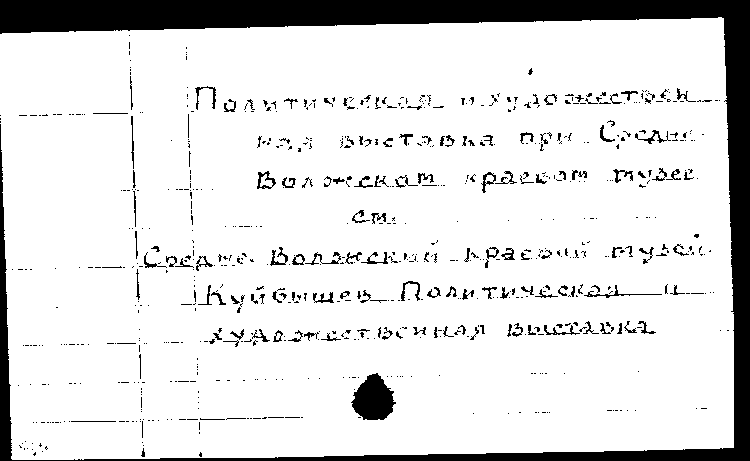 Политическая и художествен
ная выставка при Средне-
Волжском краевом музее
см.
Средне-Волжский краевой музей
Куйбышев Политическая и
художественная выставка